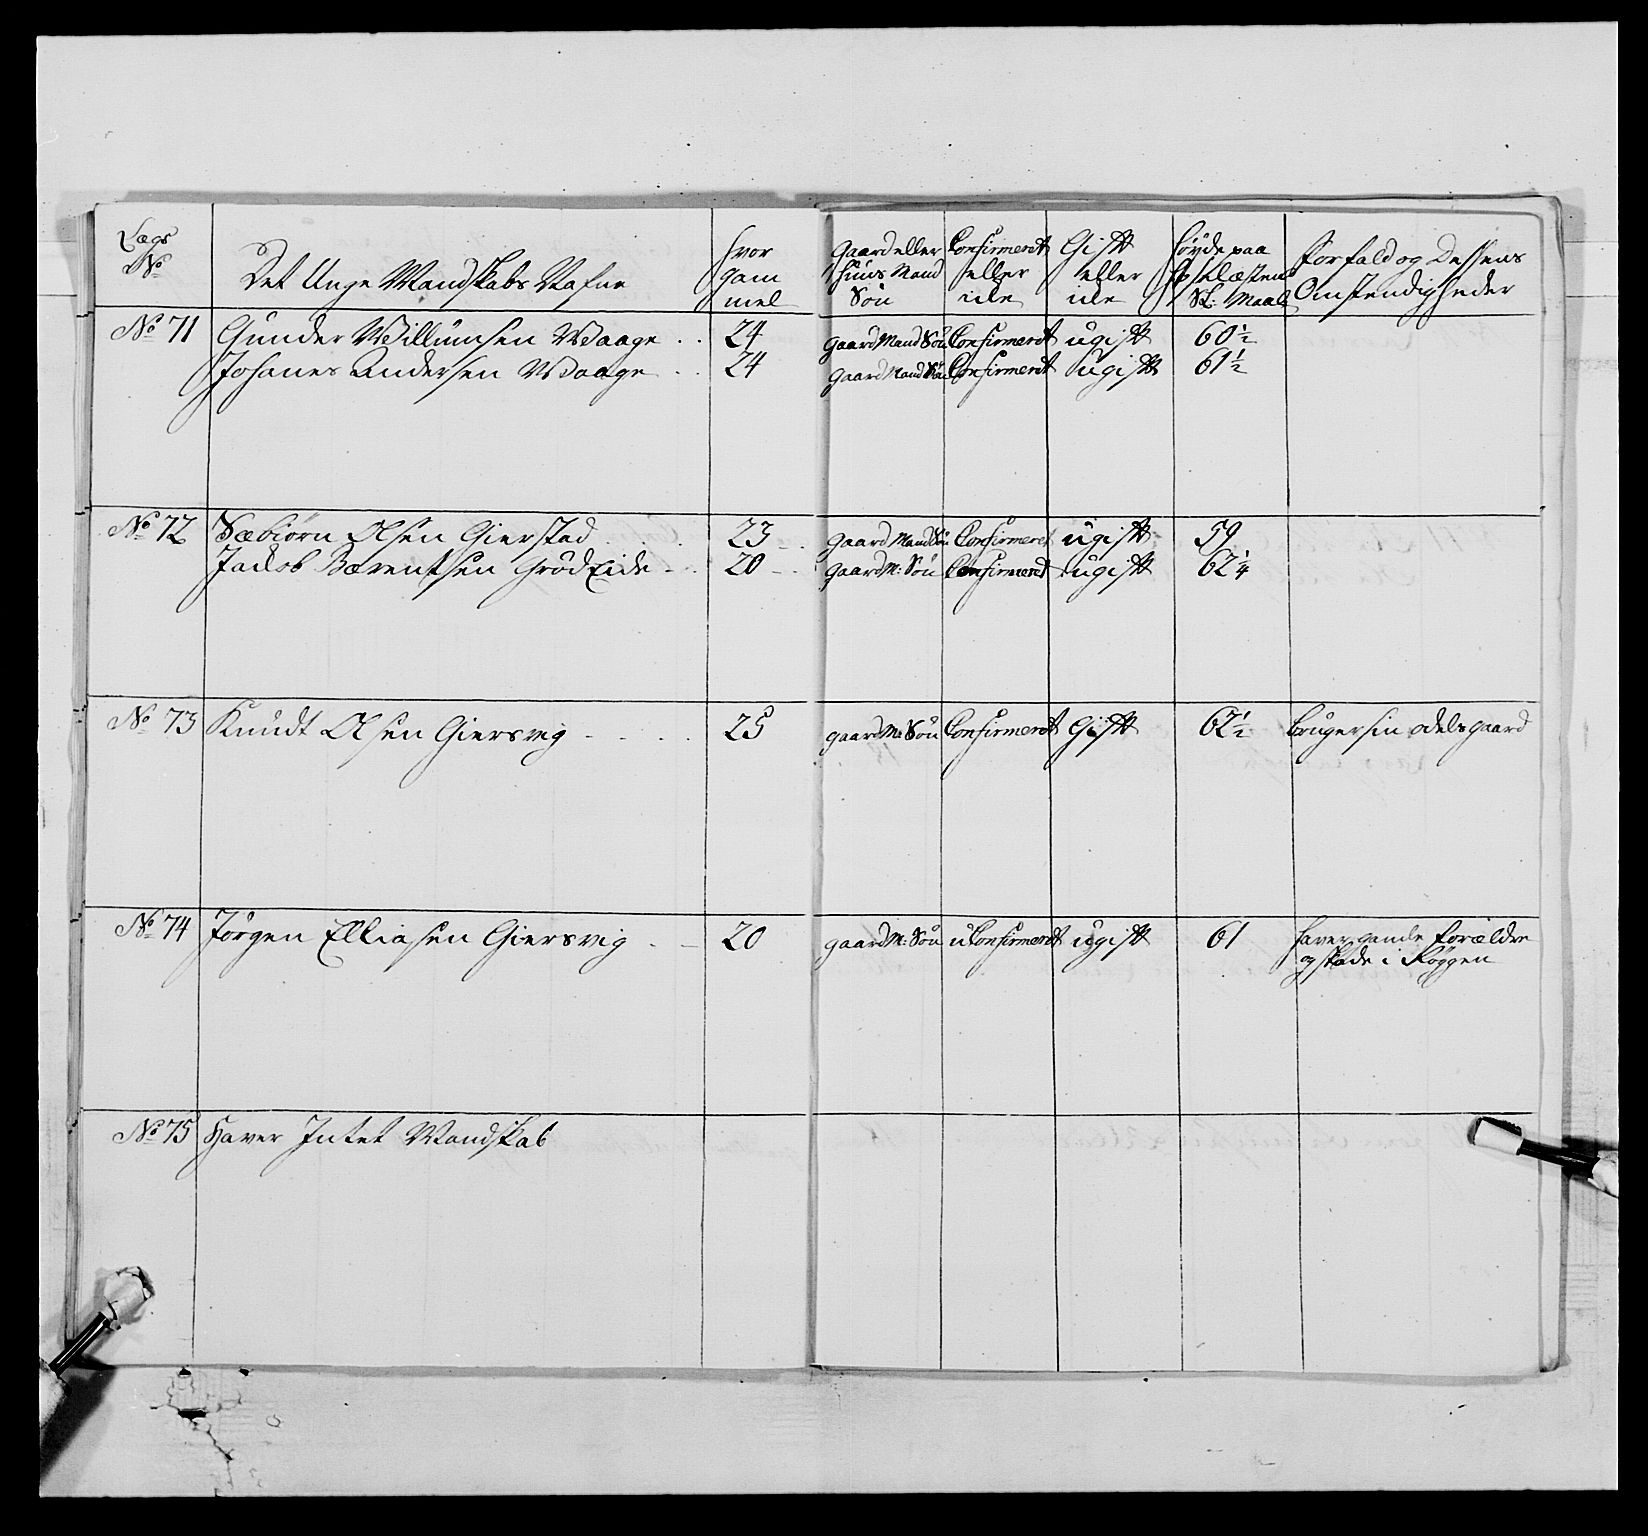 Lægs No | Det Unge Mandskabs Nafne | hvor gam mel | Gaard eller Huus Mand Søn | Confirmeret eller icke | Gift eller icke | Høyde paa Sokkelæsten Sl: Maal | Forfald og Dessens Omstendigheder
No 71 | Gunder Willumsen Waage | 24 | gaard Mand Søn | Confirmeret | ugift | 60½
Johanes Andersen Waage | 24 | gaard Mand Søn | Confirmeret | ugift | 61½
No 72 | Sæbiørn Olsen Gierstad | 23 | gaard Mand Søn | Confirmeret | ugift | 59
Jacob Barentsen Grødeide | 20 | gaard M: Søn | Confirmeret | ugift | 62¼
No 73 | Knudt Olsen Giersvig | 25 | gaard M: Søn | Confirmeret | Gift | 62½ | bruger sin odelsgaard
No 74 | Jørgen Elliasen Giersvig | 20 | gaard M: Søn | uConfirmeret | ugift | 61 | haver gamle forældre
og skade i Røggen
No 75 | Haver Intet Mandskab